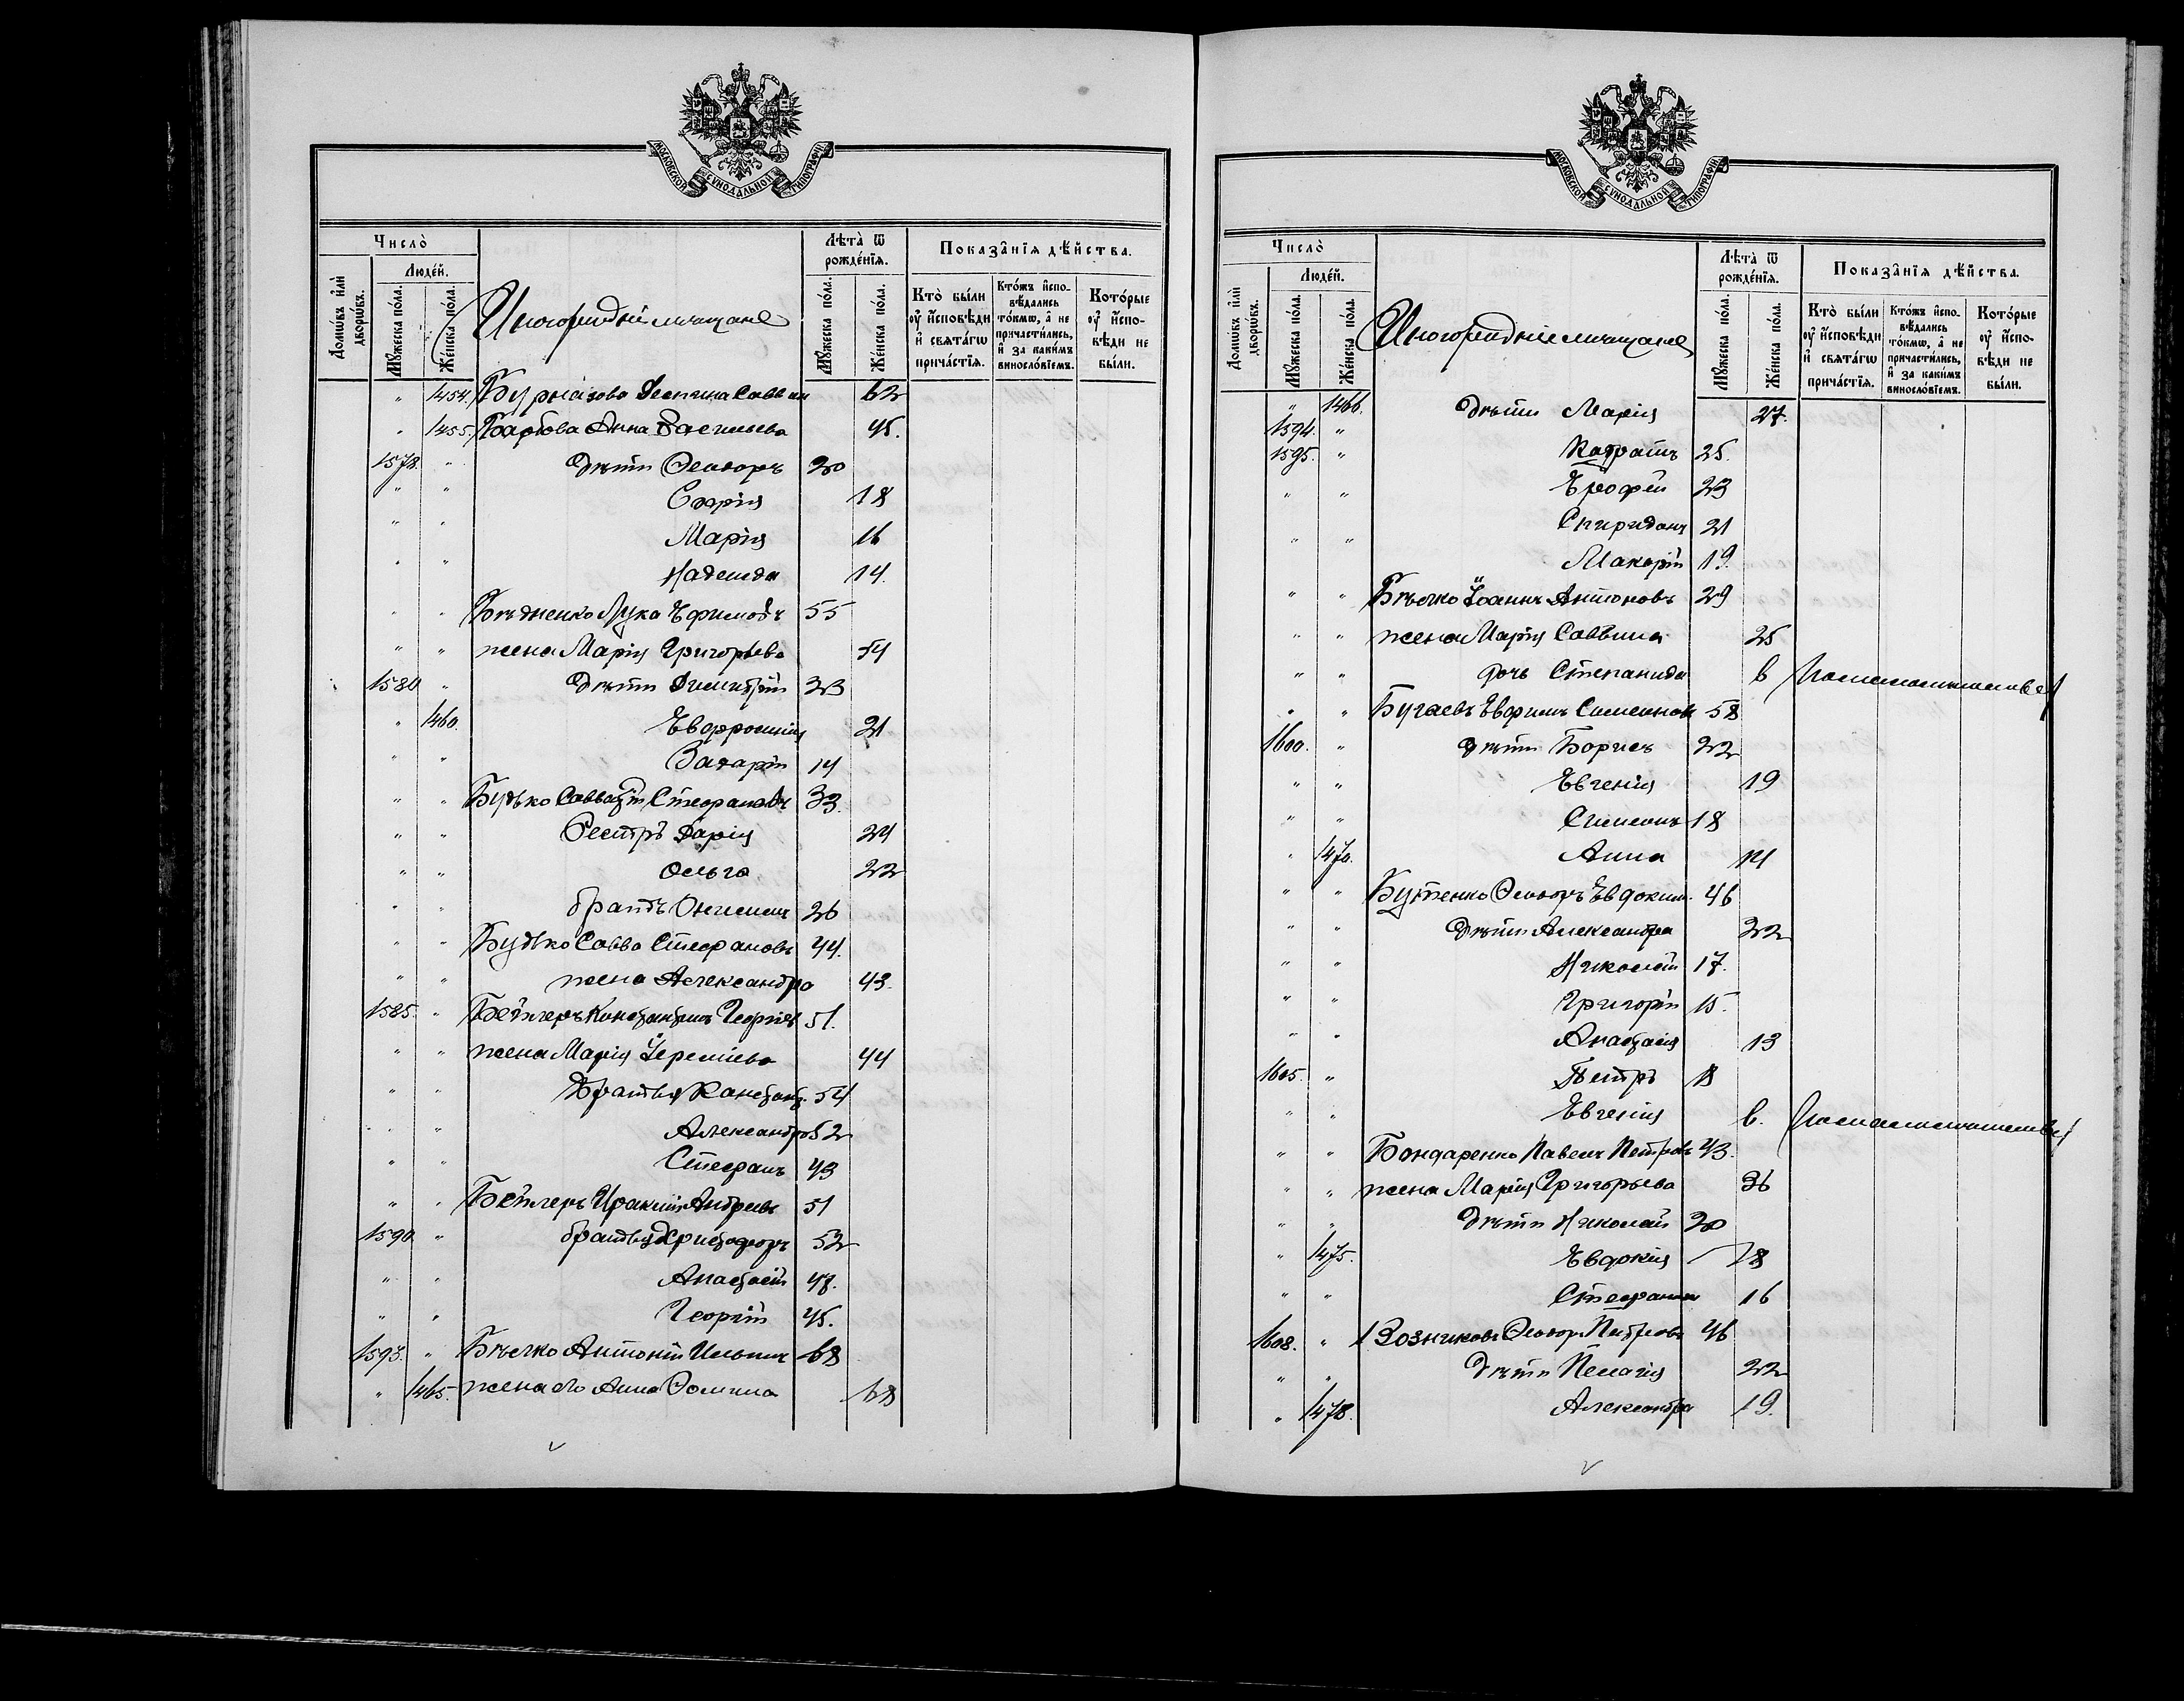 МОСКОВСКОЙ СУНОДАЛЬНОЙ ТИПОГРАФІИ
Число̀
Людей.
Домѡвъ и҆лѝ дворѡвъ.
Мꙋжеска по́ла.
Же́нска по́ла.
Иногородніе мѣщане
Лѣта̀ ѿ рожде́нїѧ.
Мꙋжеска по́ла.
Же́нска по́ла.
Показа̑нїѧ дѣ́йства.
Кто̀ бы́ли оу҆ и҆сповѣди и҆ свѧта́гѡ прича́стїѧ.
Кто́жъ и҆спо-вѣ́дались то́кмѡ, а҆ не причасти́лись, и҆ за каки́мъ винослові́емъ.
Кото́рые оу҆ и҆спо-вѣди не бы́ли.
" 1454. Саввин 62
" 1455. Анна Васильева 45.
1578. " дѣти Ѳеодоръ 20
" " 18
" " Марія 16
" " Надежда 14.
" " Бѣдненко Лука Ефимовъ 55
" " жена Марія Григорьева 54
1580 " дѣти Димитрій 23
" 1460. Евфросинія 21
" " Захарій 14
" " Будько Савватій Стефановъ 33.
" " Сестры Дарія 24
" " Ольга 22
" " братъ Онисимъ 26
" " Будько Савва Стефановъ 44.
" " жена Александра 43.
1585. " Константинъ Георгіев 51.
" " жена Марія Іереміева 44
" " Братья Констант. 54
" " Александръ 52
" " Стефанъ 43
" " Андреевъ 51
1590 " братья Христофоръ 52
" " Анастасій 47.
" " Георгій 45.
1593. " Бѣлко Антоній Ильинъ 68
" 1465. жена его Анна Ѳомина 68
МОСКОВСКОЙ СУНОДАЛЬНОЙ ТИПОГРАФІИ
Число̀
Людей.
Домѡвъ и҆лѝ дворѡвъ.
Мꙋжеска по́ла.
Же́нска по́ла.
Иногородніе мѣщане
Лѣта̀ ѿ рожде́нїѧ.
Мꙋжеска по́ла.
Же́нска по́ла.
Показа̑нїѧ дѣ́йства.
Кто̀ бы́ли оу҆ и҆сповѣди и҆ свѧта́гѡ прича́стїѧ.
Кто́жъ и҆спо-вѣ́дались то́кмѡ, а҆ не причасти́лись, и҆ за каки́мъ винослові́емъ.
Кото́рые оу҆ и҆спо-вѣди не бы́ли.
" 1466. дѣти Марія 27.
1594. "
1595. " Кодратъ 25.
" " Ерофей 23
Спиридонъ 21
" " Макарій 19.
" " Бѣлко Іоаннъ Антоновъ 29
" " жена Марія Саввина 25
" " дочь Степанида 6 По малолѣтству
" " Бугаевъ Евфимъ Симеонов 58
1600. " дѣти Борисъ 22
" " Евгенія 19
" " Симеонъ 18
" 1470. Анна 14
" " Бутенко Ѳеодоръ Евдоким. 46
" " дѣти Александра 22
" " Николай 17.
" " Григорій 15.
" " Анастасія 13
1605. " Петръ 18
" " Евгенія 6. По малолѣтству
" " Бондаренко Павелъ Петровъ 43.
" " жена Марія Григорьева 36
" " дѣти Николай 20
" 1475. Евдокія 18
" " 16
1608. " 1 Возниковъ Ѳеодоръ Петровъ 46
" " дѣти Пелагія 22
" 1478. Александра 19.